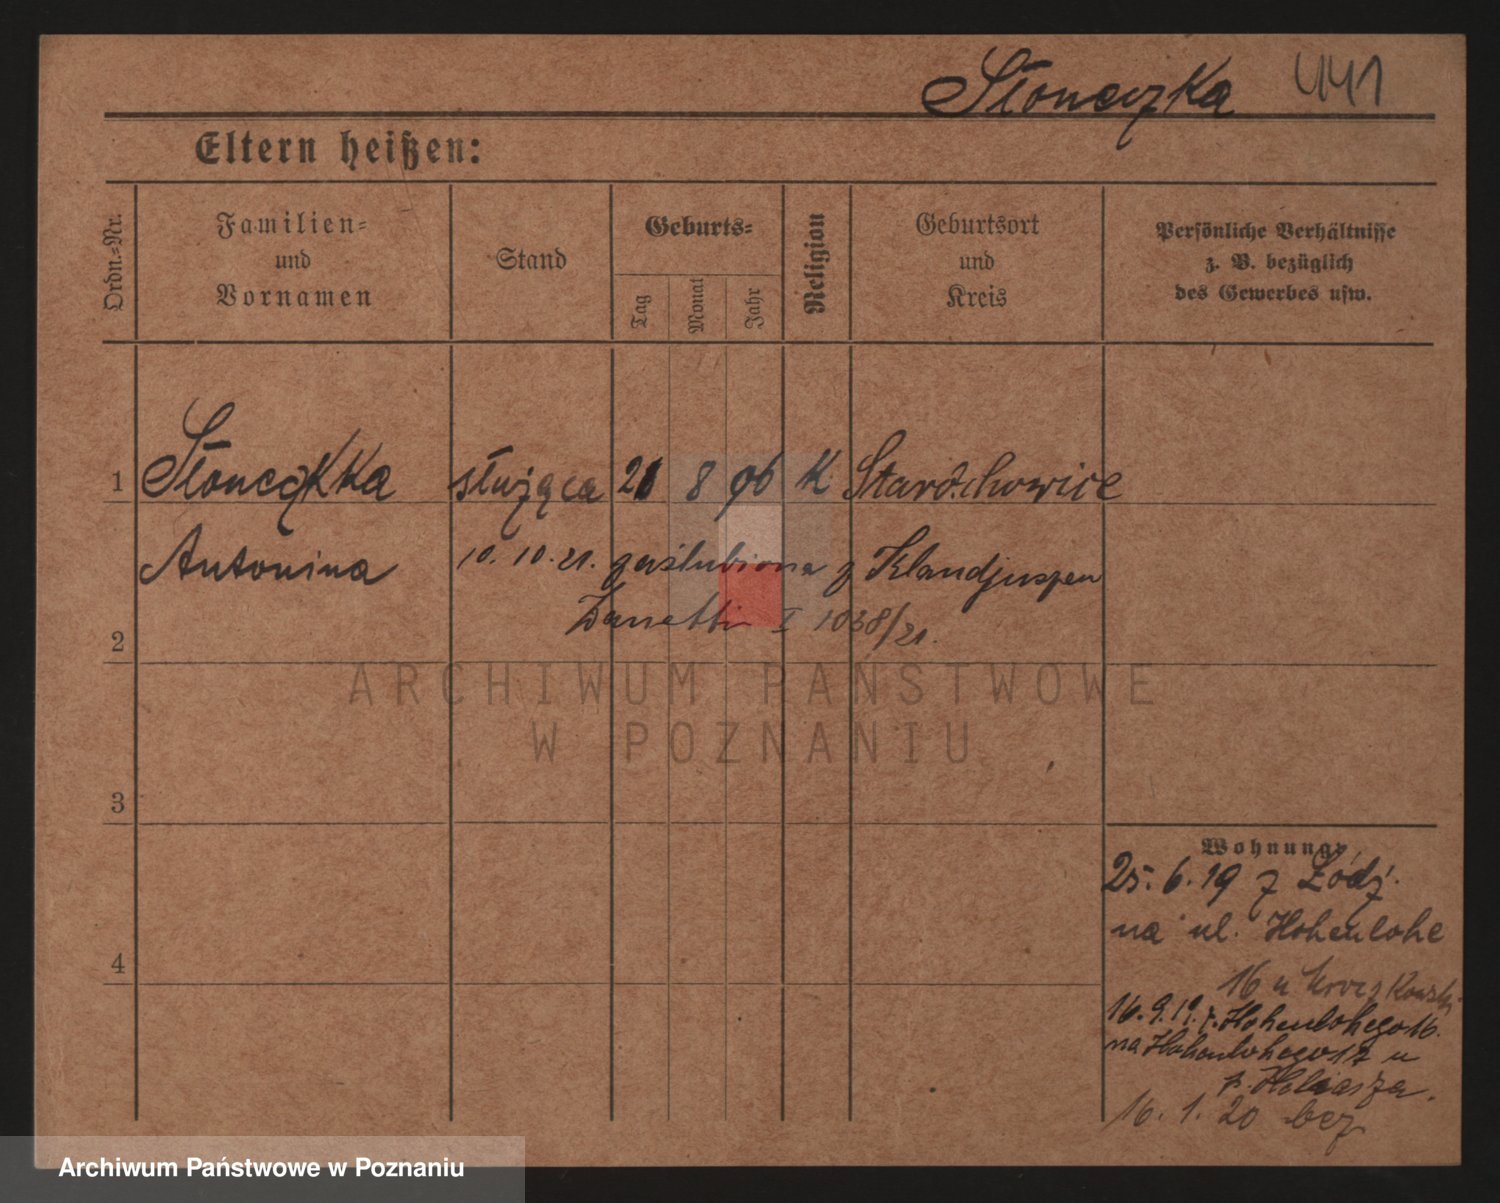 Słonczka 441
Eltern heißen:
Ordn.=Nr.
Familien=
und
Vornamen
Stand
Geburts=
Tag
Monat
Jahr
Religion
Geburtsort
und
Kreis
Persönliche Verhältnisse
z. B. bezüglich
des Gewerbes usw.
1 służąca 21 8 96 K
Antonina 10. 10. 21. zaślubiona z
Zanetti I 1038/21.
2
ARCHIWUM PAŃSTWOWE
W POZNANIU
3
Wohnung:
25. 6. 19 z Łódź.
na ul. Hohenlohe
4
16 u
16. 9. 19. z. Hohenlohego 16.
na Hohenlohego 17 u
p.
16. 1. 20 bez
Archiwum Państwowe w Poznaniu